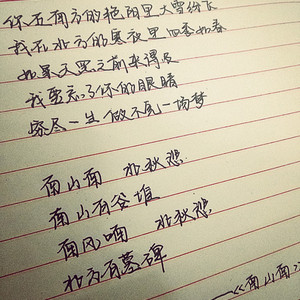 你在南方的艳阳里大雪纷飞
我在北方的寒夜里四季如春
如果天黑之前来得及
我要忘了你的眼睛
穷尽一生 做不完一场梦
南山南 北秋悲
南山有谷堆
南风喃 北秋悲
北方有墓碑
——《南山南